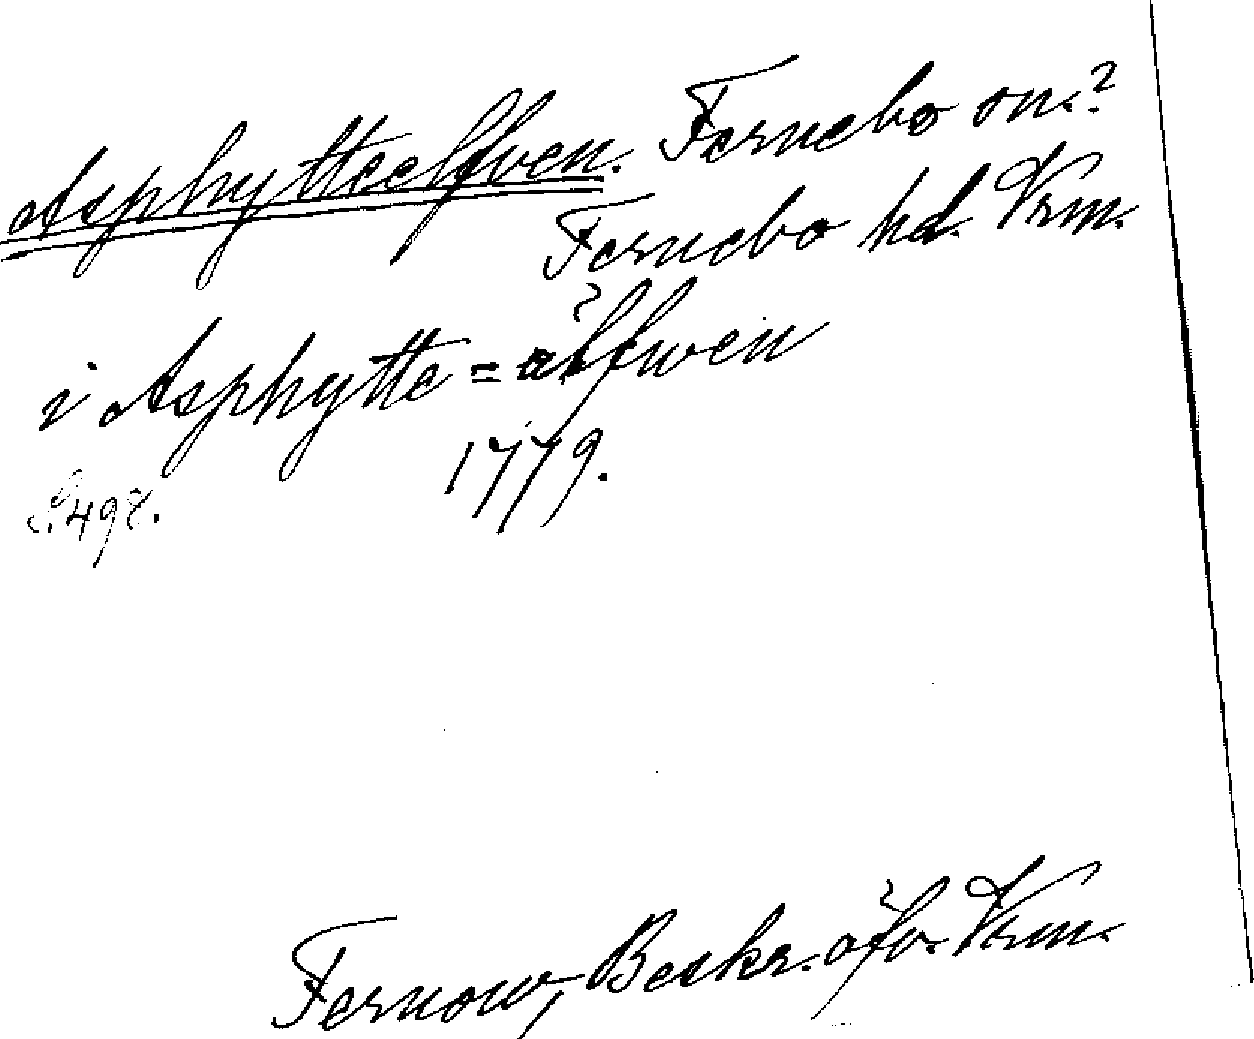 Asphytteelfven. Fernebo sn.?
Fernebo hd. Vrm.
i Asphytte=älfwen
1779.
S. 498.
Fernow, Beskr. öfv. Vrm.